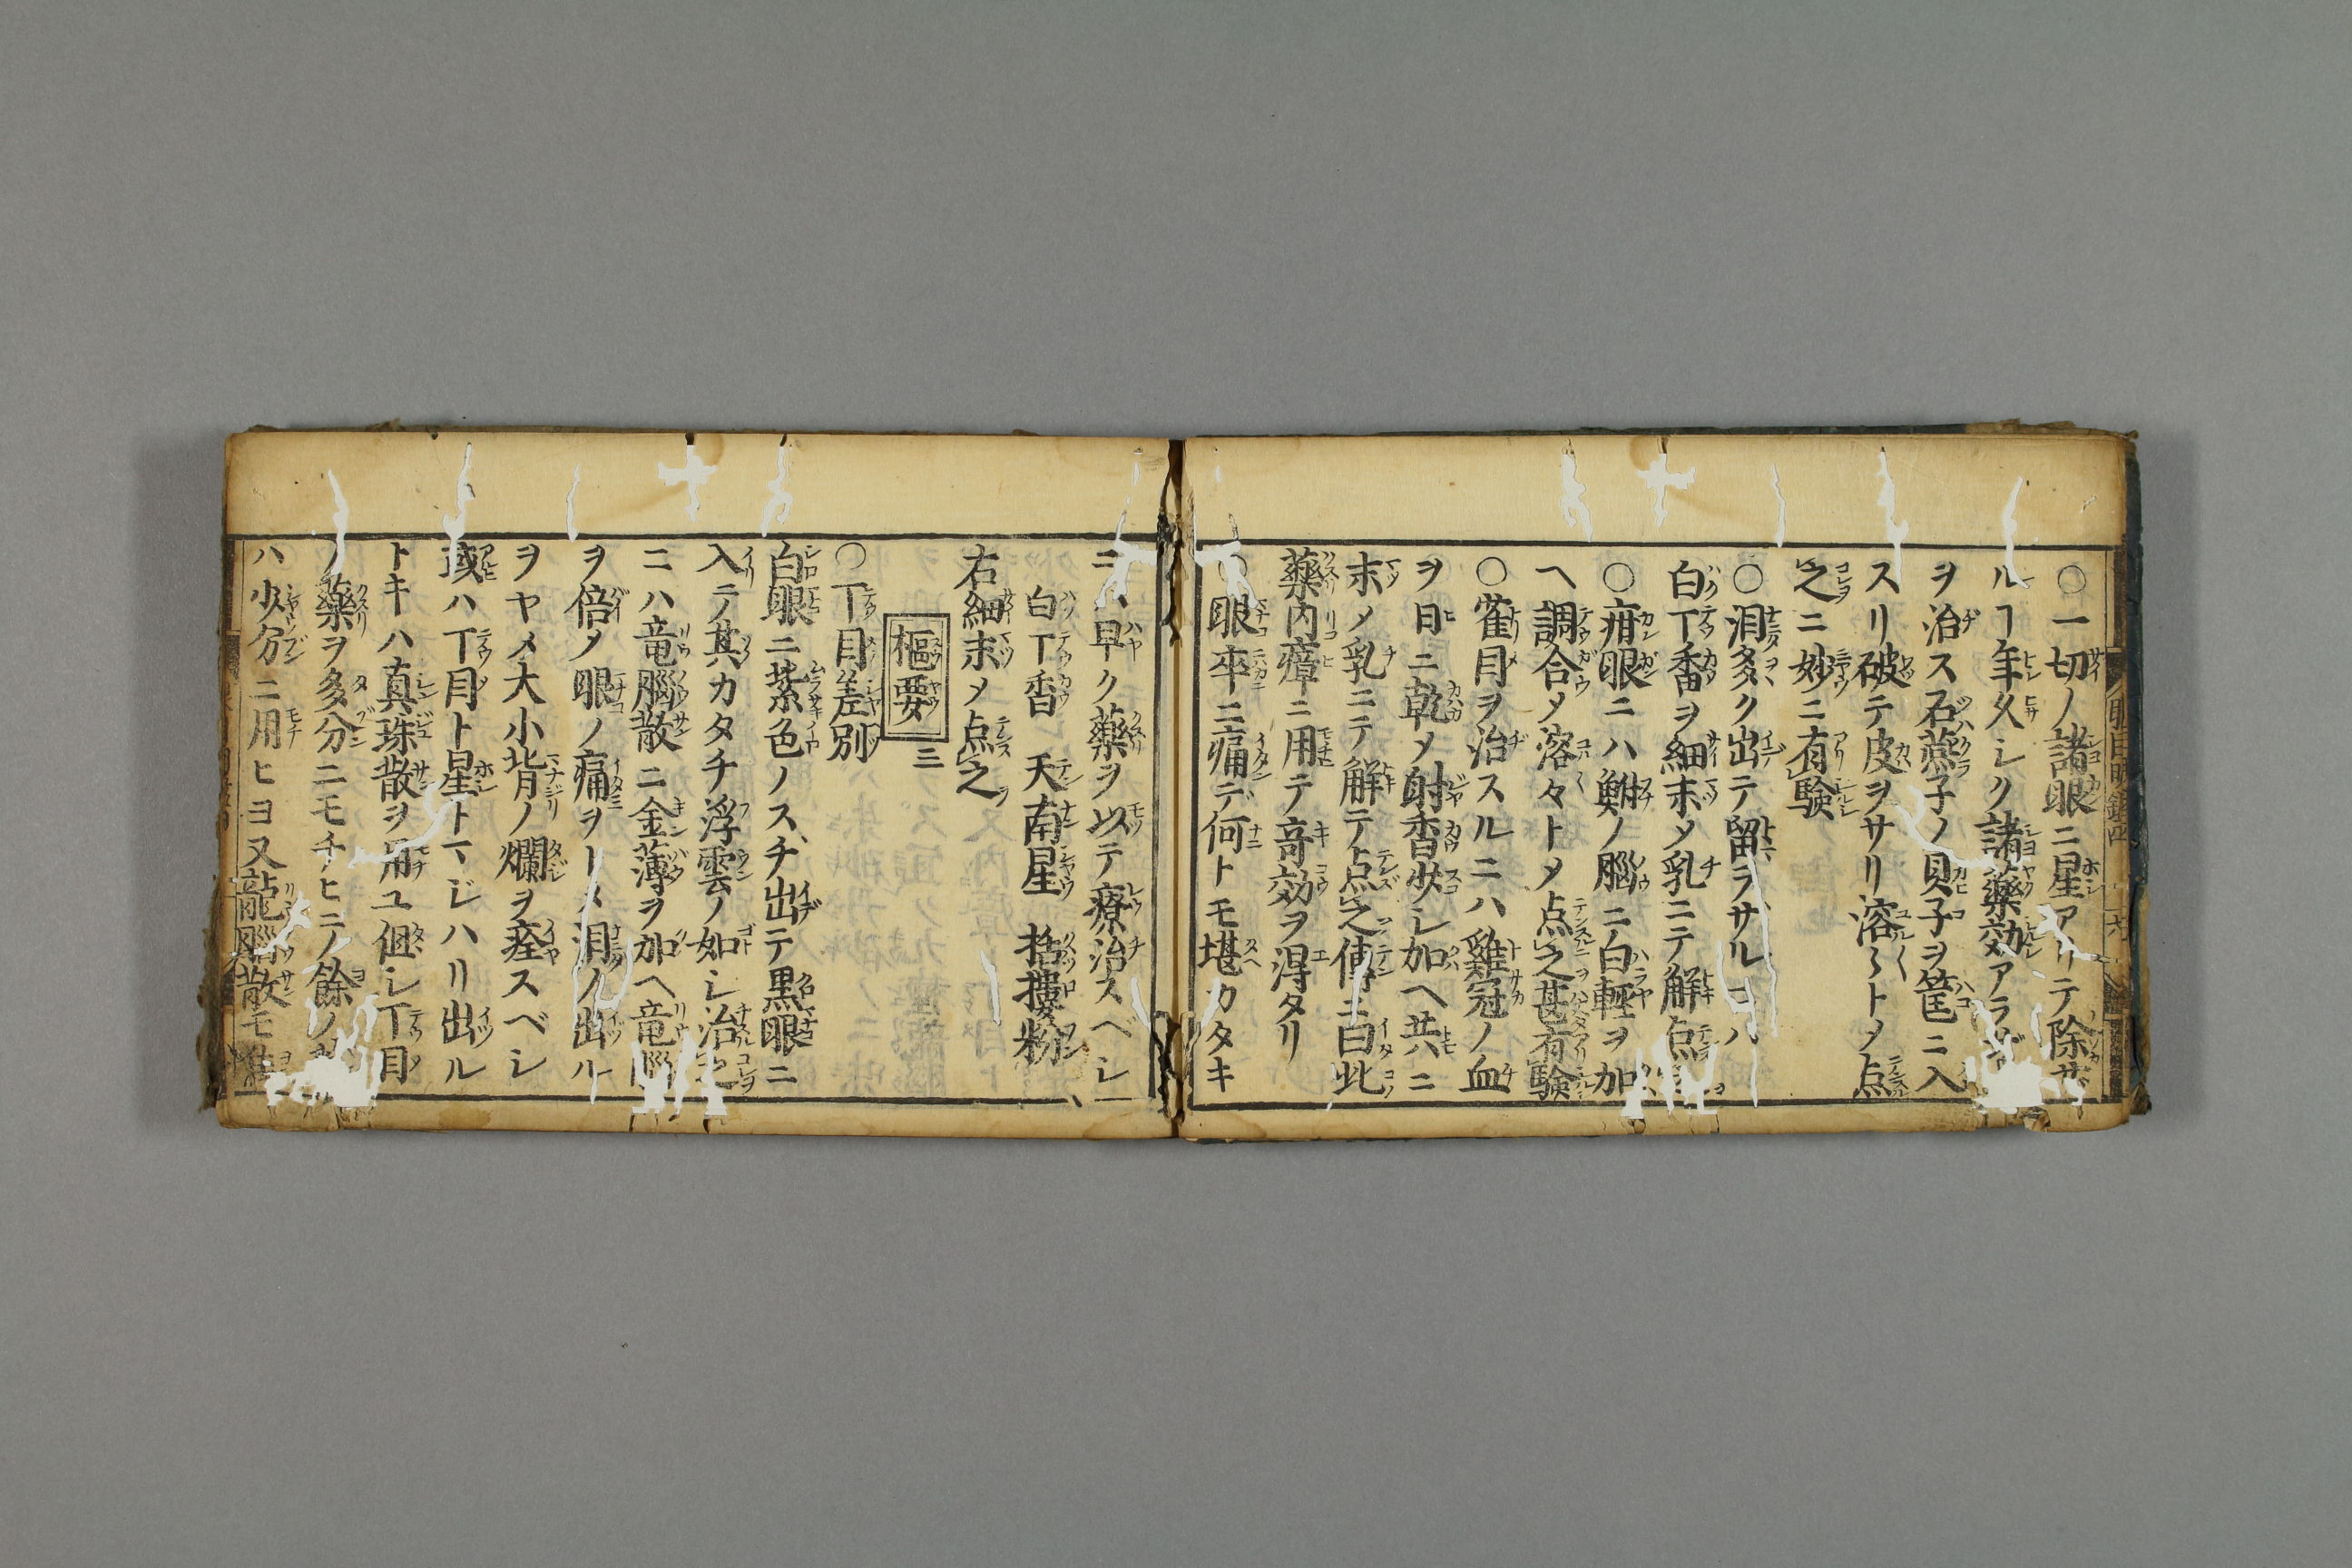 ○一切ノ諸眼ニ星アリテ除サ
ルヿ年久シク諸藥効アラザ
ヲ治ス石燕子ノ貝子ヲ筐ニ入
スリ破テ皮ヲサリ溶〻トメ点
之ニ妙ニ有験
○泪多ク出テ留ラサルニハ
白丁香ヲ細末メ乳ニテ解点
○疳眼ニハ鮒ノ腦ニ白輕ヲ加
ヘ調合メ溶々トメ点之甚有験
○雀目ヲ治スルニハ雞冠ノ血
ヲ日ニ乾メ射香少シ加ヘ共ニ
末メ乳ニテ解テ点之傳ニ曰此
藥内瘴ニ用テ竒効ヲ得タリ
○眼卒ニ痛デ何トモ堪カタキ
ニハ早ク藥ヲ以テ療治スベシ
白丁香 天南星 栝蔞粉
右細末メ点之
樞要三
○丁目差別
白眼ニ紫色ノスヂ出テ黒眼ニ
入テ其カタチ浮雲ノ如シ治之
ニハ竜腦散ニ金薄ヲ加ヘ竜腦
ヲ倍メ眼ノ痛ヲトメ泪ノ出ル
ヲヤメ大小眥ノ爛ヲ痊スベシ
或ハ丁目ト星トマジハリ出ル
トキハ真珠散ヲ用ユ但シ丁目
ノ藥ヲ多分ニモチヒニノ餘ノ
ハ少分ニ用ヒヨ又龍腦散モ